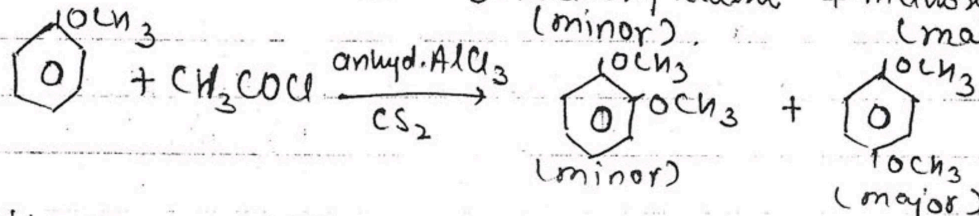 (minor). (ma
OCH3 + CH3COCl anhyd. AlCl3 CS2 OCH3 OCH3 + OCH3
(minor) OCH3
(major)